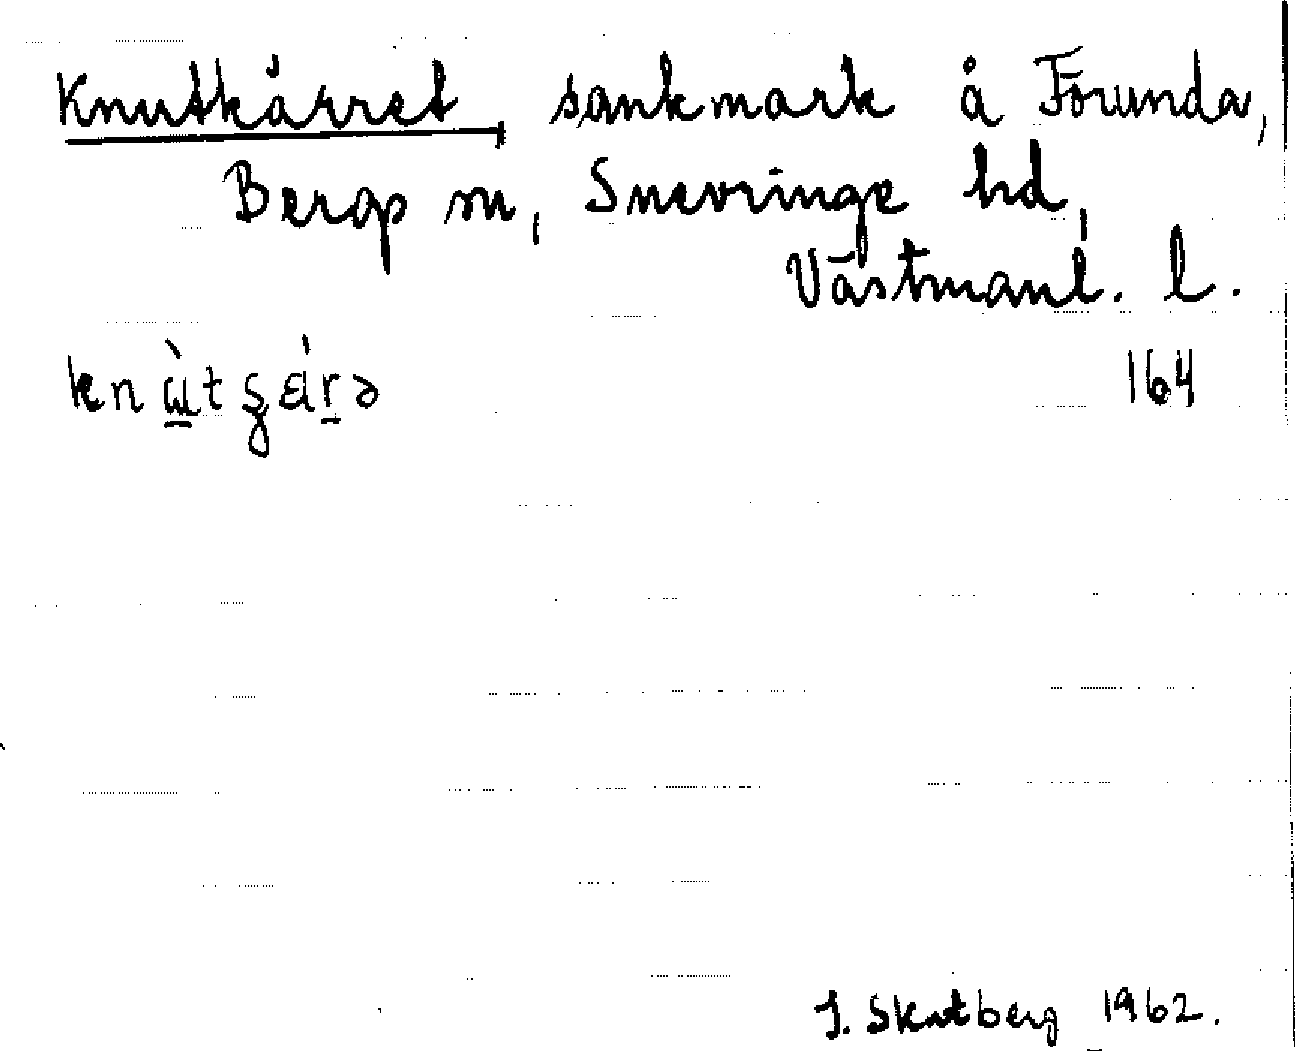 Knutkärret sankmark å Förunda,
Bergs sn, Snevringe hd,
Västmanl. l.
164
J. Skatberg 1962.